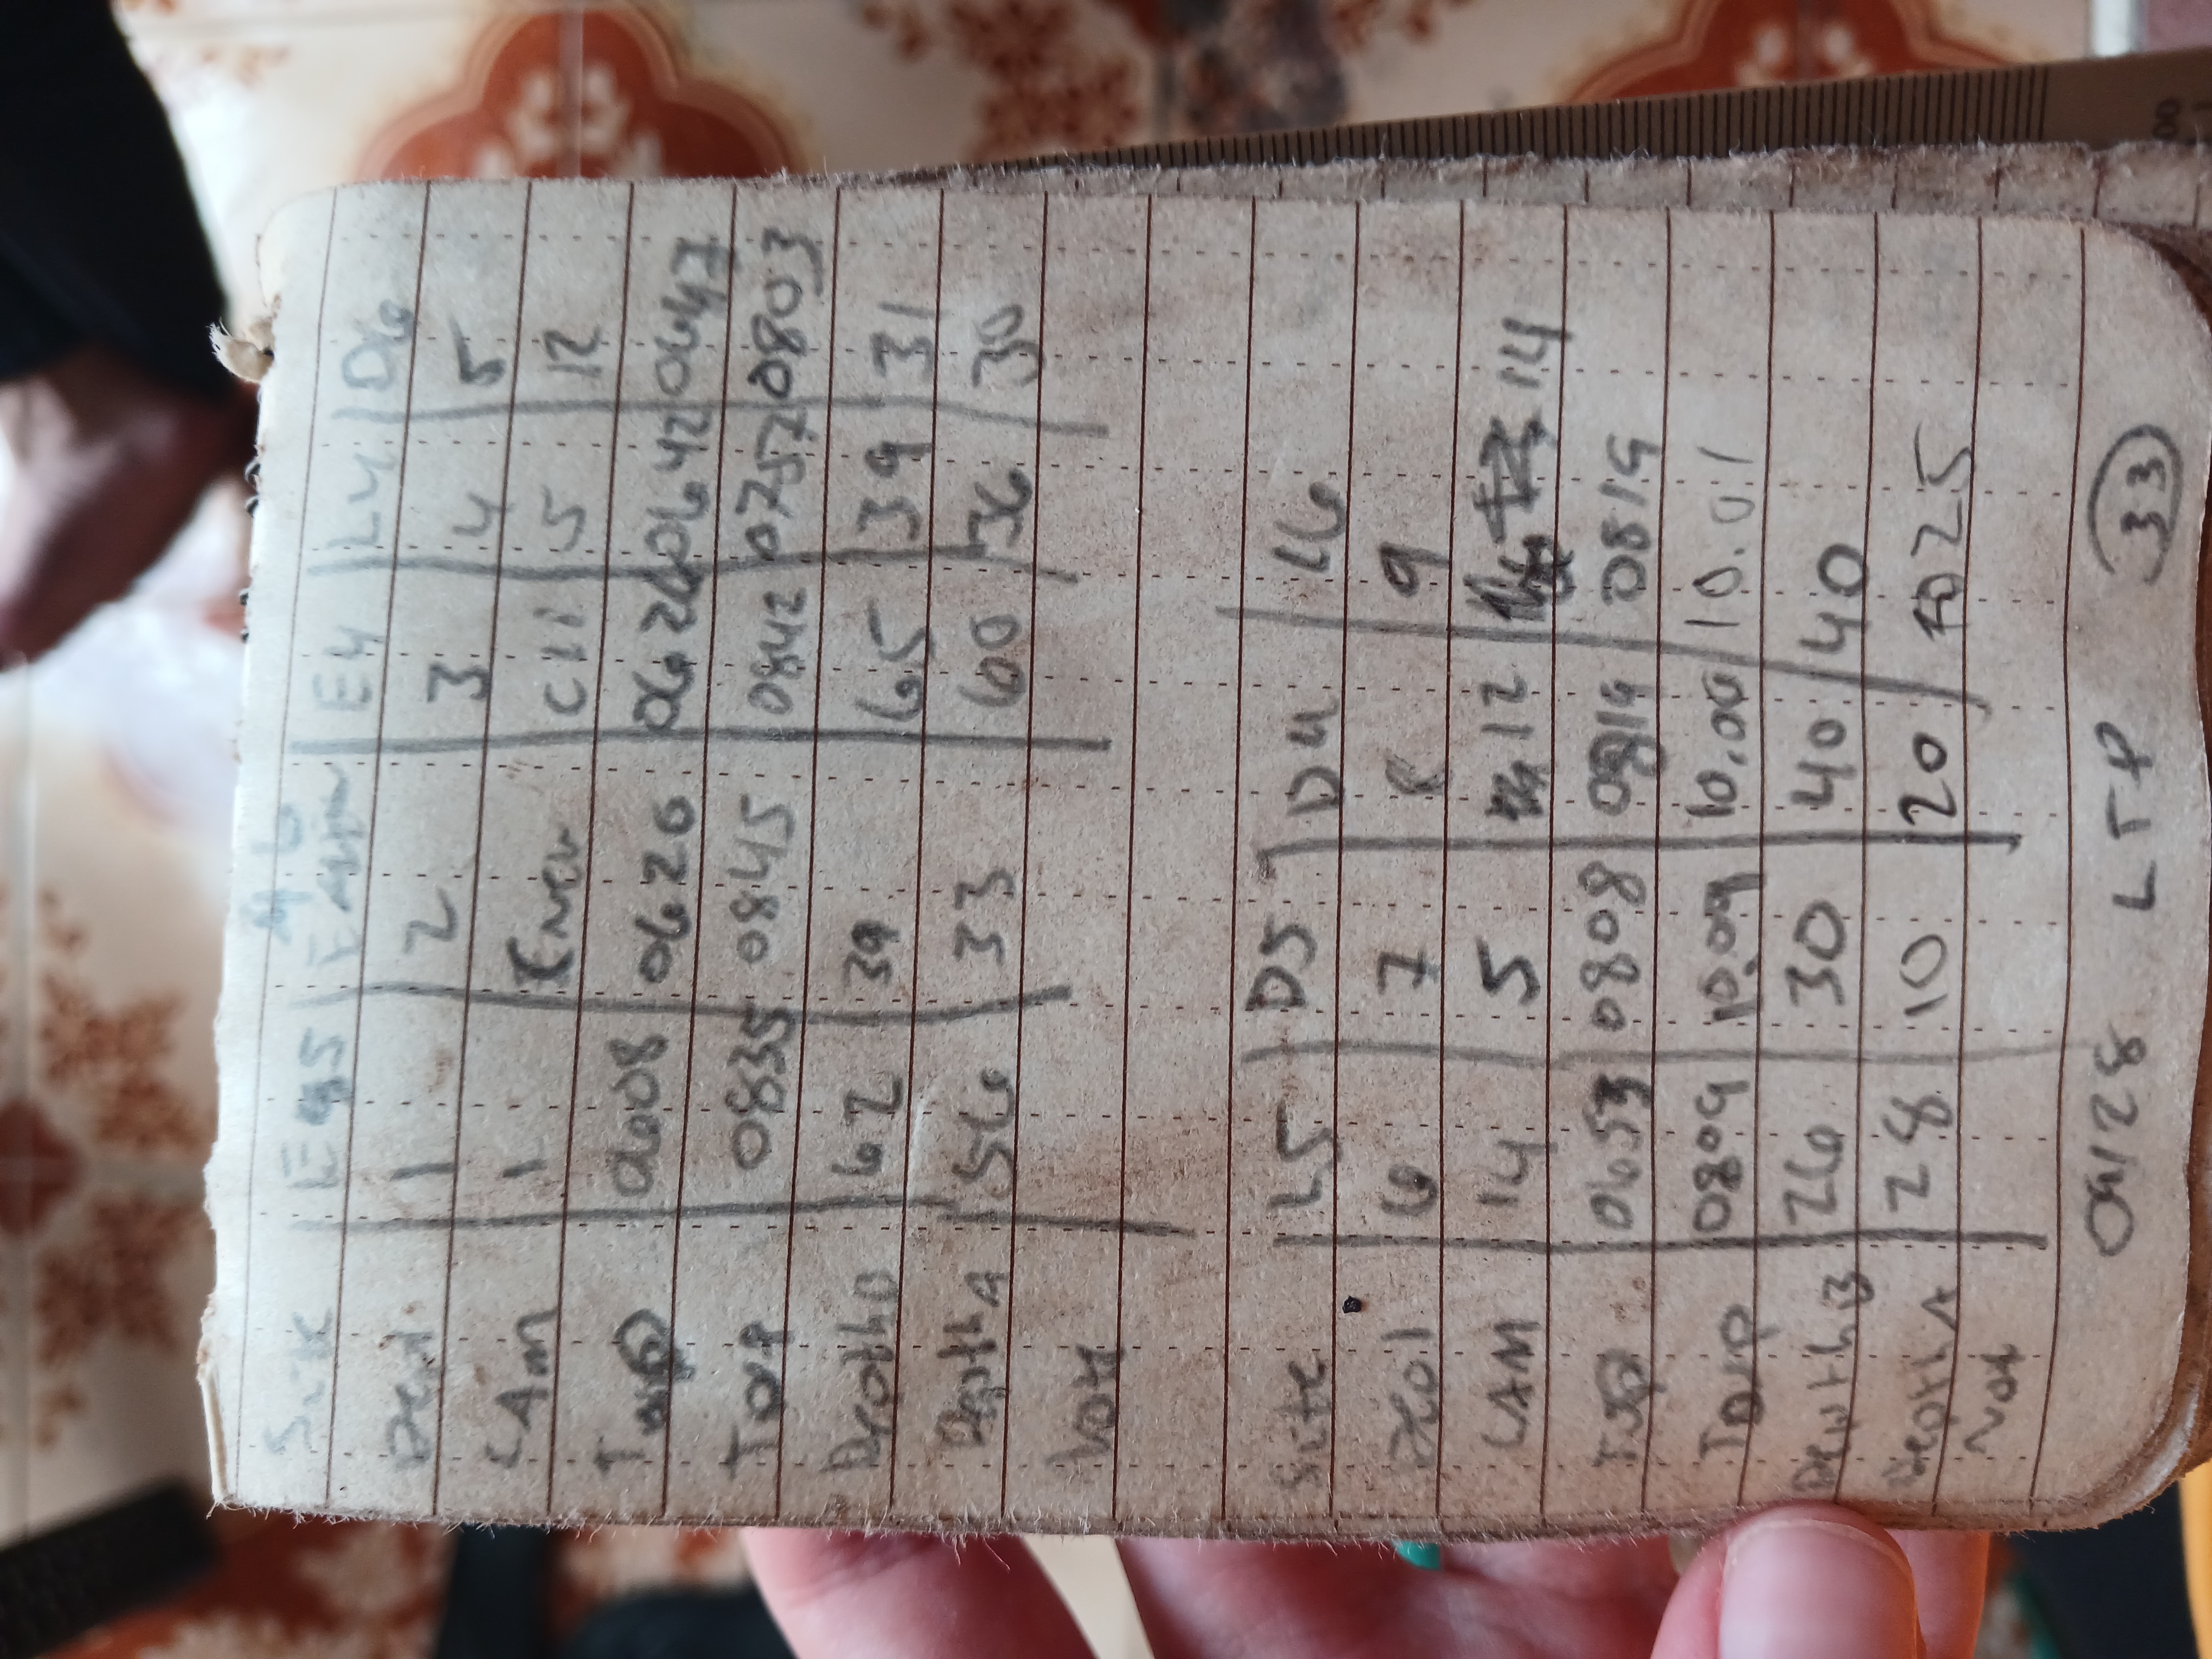 Site E5 E6 E4 L4 D6
Depl 1 2 3 4 5
CAM 1 CNEW C11 5 12
0608 0620 0626 0642 0647
0835 0845 0842 0757 0803
Depth B 62 39 65 39 31
Depth A 56 33 60 36 30
Note
Site L5 D5 D4 L6
Depl 6 7 8 9
CAM 14 5 12 14
0653 0808 0819 0819
0809 10.09 10.06 10.01
Depth B 26 30 40 40
Depth A 28 10 20 25
Not
09/28 LTP 33